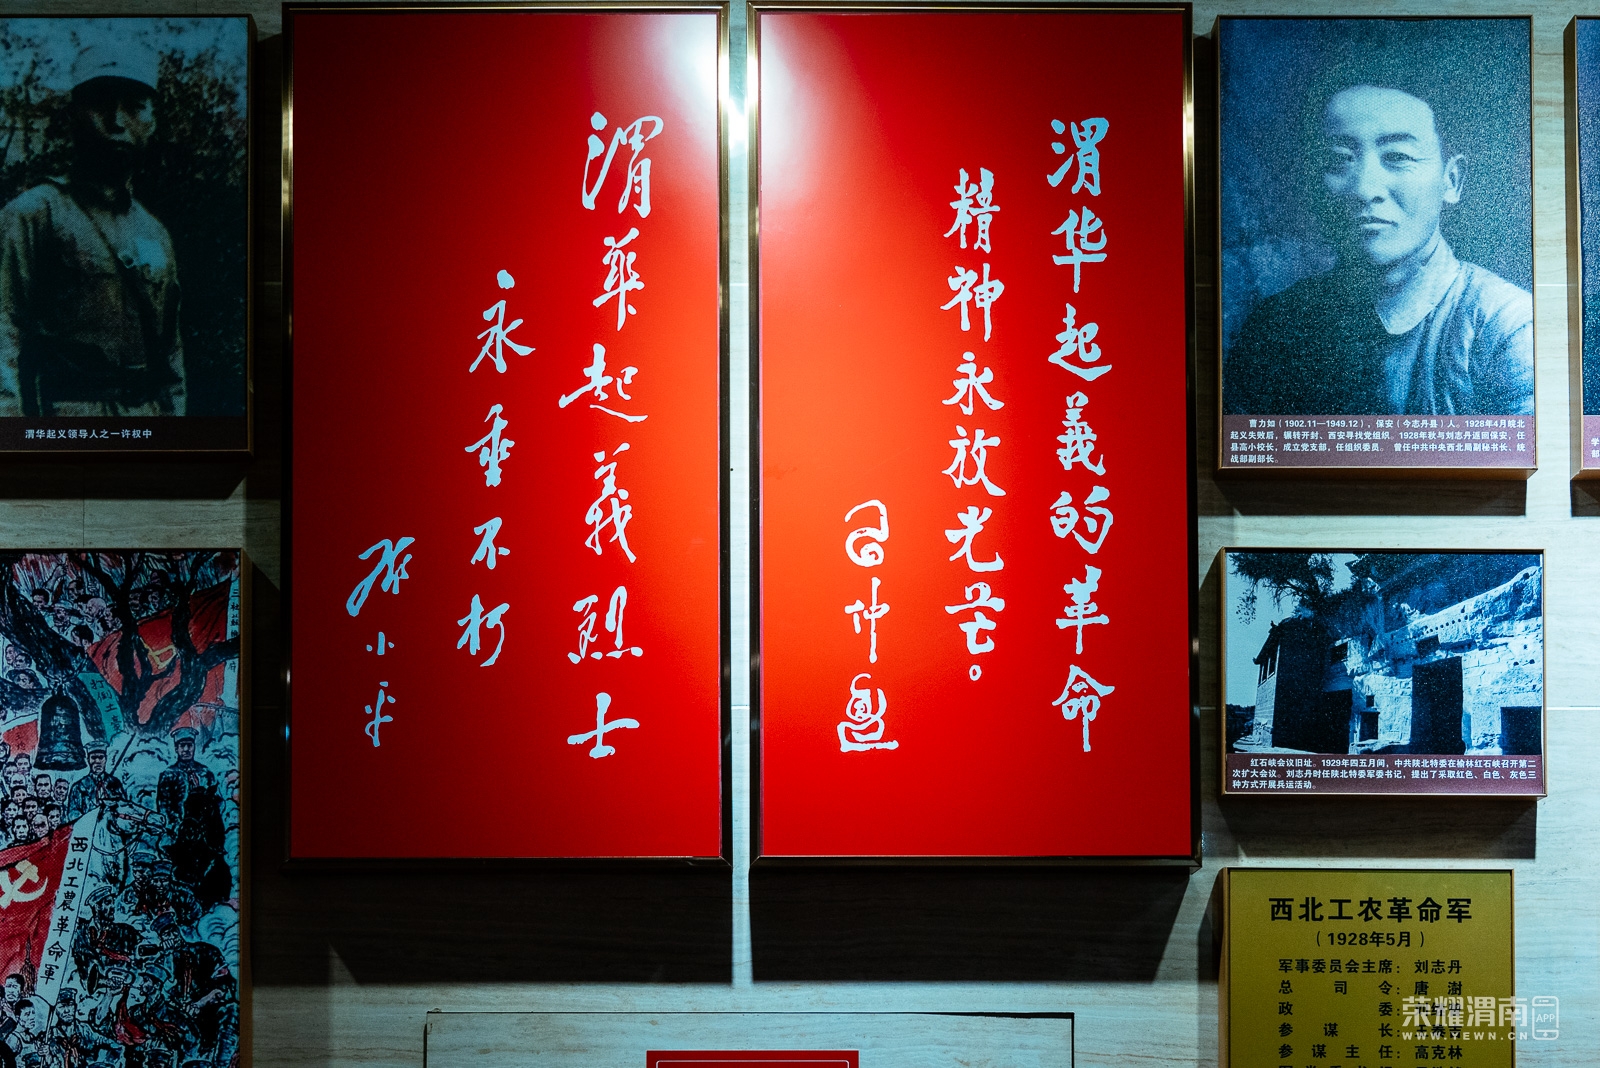 渭华起义领导人之一许权中
渭華起義烈士
永垂不朽
邓小平
渭华起義的革命
精神永放光芒。
习仲勋
曹力如（1902.11—1949.12），保安（今志丹县）人。1928年4月皖北
起义失败后，辗转开封、西安寻找党组织。1928年秋与刘志丹返回保安，任
县高小校长，成立党支部，任组织委员。曾任中共中央西北局副秘书长、统
战部副部长。
红石峡会议旧址。1929年四五月间，中共陕北特委在榆林红石峡召开第二
次扩大会议。刘志丹时任陕北特委军委书记，提出了采取红色、白色、灰色三
种方式开展兵运活动。
西北工農革命軍
西北工农革命军
（1928年5月）
军事委员会主席：刘志丹
总司令：唐澍
政委：
参谋长：
参谋主任：高克林
荣耀渭南
APP
WWW.YEWN.CN